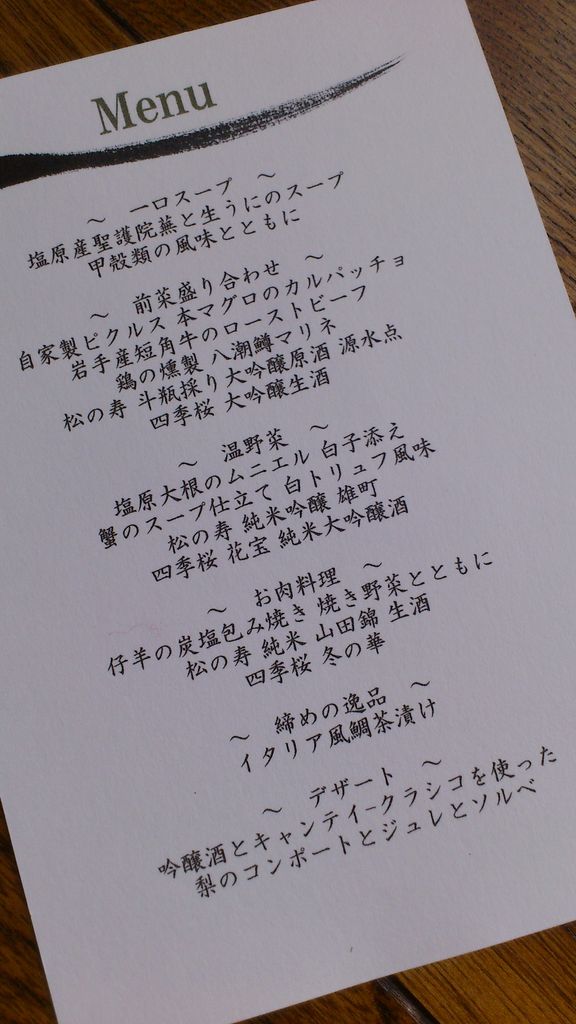 Menu
～ 一口スープ ～
塩原産聖護院蕪と生うにのスープ
甲殻類の風味とともに
～ 前菜盛り合わせ ～
自家製ピクルス 本マグロのカルパッチョ
岩手産短角牛のローストビーフ
鶏の燻製 八潮鱒マリネ
松の寿 斗瓶採り大吟醸原酒 源水点
四季桜 大吟醸生酒
～ 温野菜 ～
塩原大根のムニエル 白子添え
蟹のスープ仕立て 白トリュフ風味
松の寿 純米吟醸 雄町
四季桜 花宝 純米大吟醸酒
～ お肉料理 ～
仔羊の炭塩包み焼き 焼き野菜とともに
松の寿 純米 山田錦 生酒
四季桜 冬の華
～ 締めの逸品 ～
イタリア風鯛茶漬け
～ デザート ～
吟醸酒とキャンティ-クラシコを使った
梨のコンポートとジュレとソルベ